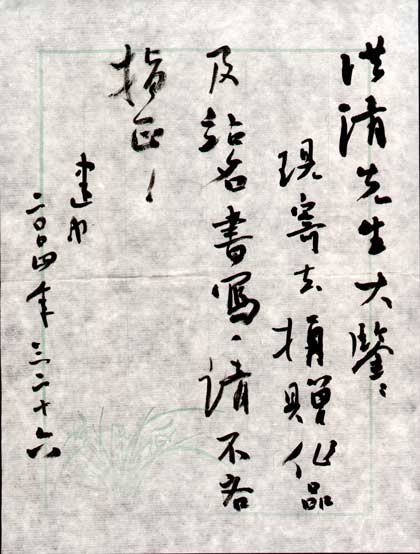 洪清先生大鑒：
現寄去捐贈作品
及站名書寫，請不吝
指正！
建
二〇〇四年三二十六